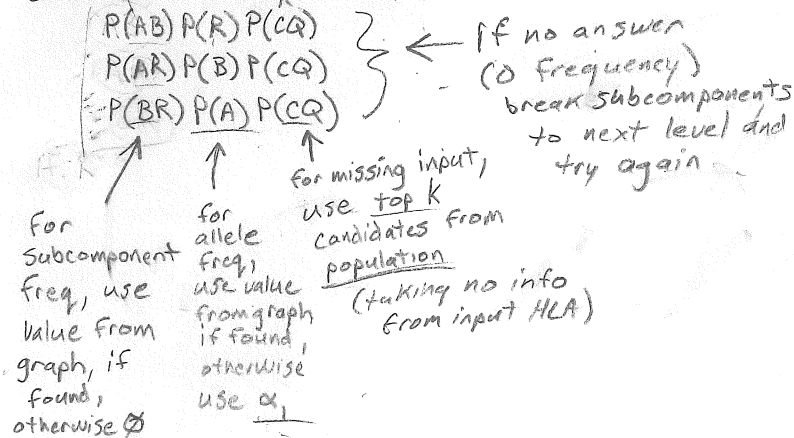 P(AB) P(R) P(CQ)
P(AR) P(B) P(CQ)
P(BR) P(A) P(CQ)
If no answer
(0 frequency)
break subcomponents
to next level and
try again
for
subcomponent
freq, use
value from
graph, if
found,
otherwise ∅
for
allele
freq,
use value
from graph
if found,
otherwise
use α1
for missing input,
use top k
candidates from
population
(taking no info
from input HLA)